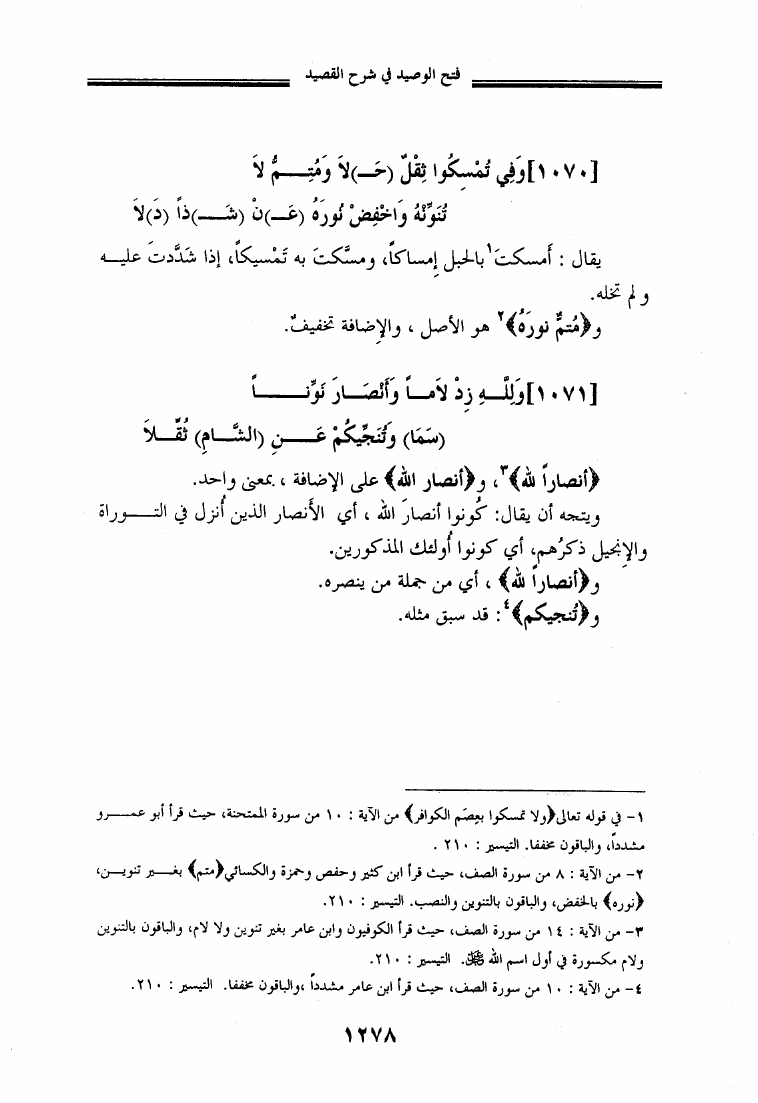 فتح الوصيد في شرح القصيد
[١٠٧٠] وَفِي تُمْسِكُوا ثِقْلٌ (حَـ)لاَ وَمُتِـــمُّ لاَ
تُنَوِّنْهُ وَاخْفِضْ نُورَهُ (عَـ)نْ (شَـــ)ذاً (دَ)لاَ
يقال : أَمسكتَ١ بالحبل إِمساكاً، ومسَّكتَ به تَمْسِيكاً، إذا شَدَّدتَ عليــه
و لم تخله.
و﴿مُتمٌّ نورَهُ﴾٢ هو الأصل ، والإضافة تخفيفٌ.
[١٠٧١] وَلِلَّــهِ زِدْ لاَمــاً وَأَنْصَــارَ نَوِّنــــاً
(سَمَا) وَتُنَجِّيكُمْ عَـــنِ (الشَّـامِ) ثُقِّـلاَ
﴿أنصاراً لله﴾٣، و﴿أنصار الله﴾ على الإضافة ، بمعنى واحد.
ويتجه أن يقال: كُونوا أنصارَ الله ، أي الأنصار الذين أُنزل في التــــوراة
والإنجيل ذكرُهم، أي كونوا أولئك المذكورين.
و﴿أنصاراً لله﴾ ، أي من جملة من ينصره.
و﴿تُنجيكم﴾٤: قد سبق مثله.
١- في قوله تعالى﴿ولا تمسكوا بعِصَم الكوافر﴾ من الآية : ١٠ من سورة الممتحنة، حيث قرأ أبو عمـــرو
مشدداً، والباقون مخففا. التيسير : ٢١٠ .
٢- من الآية : ٨ من سورة الصف، حيث قرأ ابن كثير وحفص وحمزة والكسائي﴿متم﴾ بغـــير تنويــن،
﴿نوره﴾ بالخفض، والباقون بالتنوين والنصب. التيسير : ٢١٠.
٣- من الآية : ١٤ من سورة الصف، حيث قرأ الكوفيون وابن عامر بغير تنوين ولا لام، والباقون بالتنوين
ولام مكسورة في أول اسم الله ﷻ. التيسير : ٢١٠.
٤- من الآية : ١٠ من سورة الصف، حيث قرأ ابن عامر مشدداً ،والباقون مخففا. التيسير : ٢١٠.
١٢٧٨